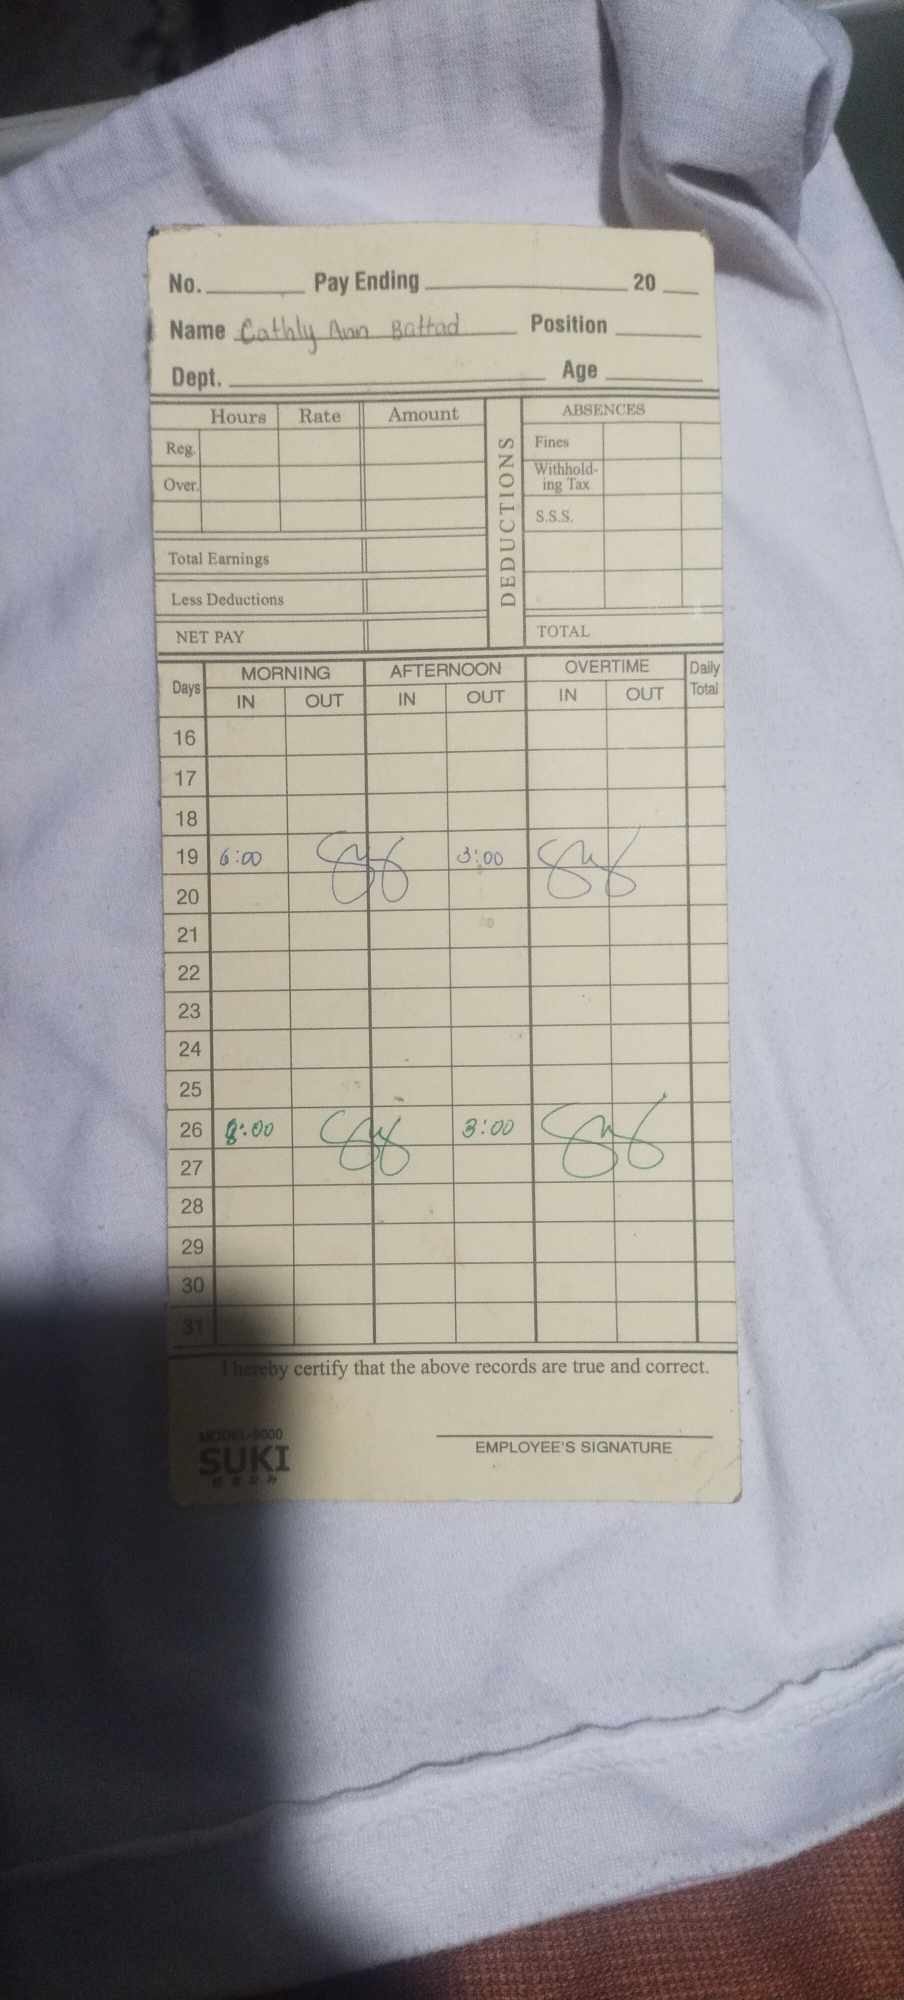 No. Pay Ending 20
Name Cathly Ann Battad Position
Dept. Age
Hours Rate Amount
Reg.
Over.
Total Earnings
Less Deductions
NET PAY
DEDUCTIONS
ABSENCES
Fines
Withhold-
ing Tax
S.S.S.
TOTAL
Days MORNING AFTERNOON OVERTIME Daily Total
IN OUT IN OUT IN OUT
16
17
18
19 6:00 3:00
20
21
22
23
24
25
26 8:00 3:00
27
28
29
30
31
I hereby certify that the above records are true and correct.
MODEL-9000
SUKI
EMPLOYEE'S SIGNATURE